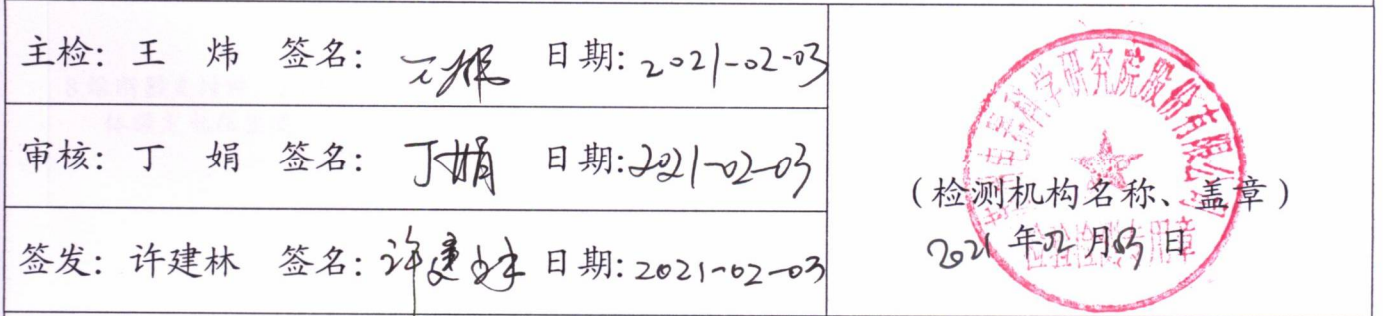 主检: 王 炜 签名: 王炜 日期: 2021-02-03
审核: 丁 娟 签名: 丁娟 日期: 2021-02-03
签发: 许建林 签名: 许建林 日期: 2021-02-03
科学研究院股份有限公司
(检测机构名称、盖章)
2021年02月03日
检验检测专用章